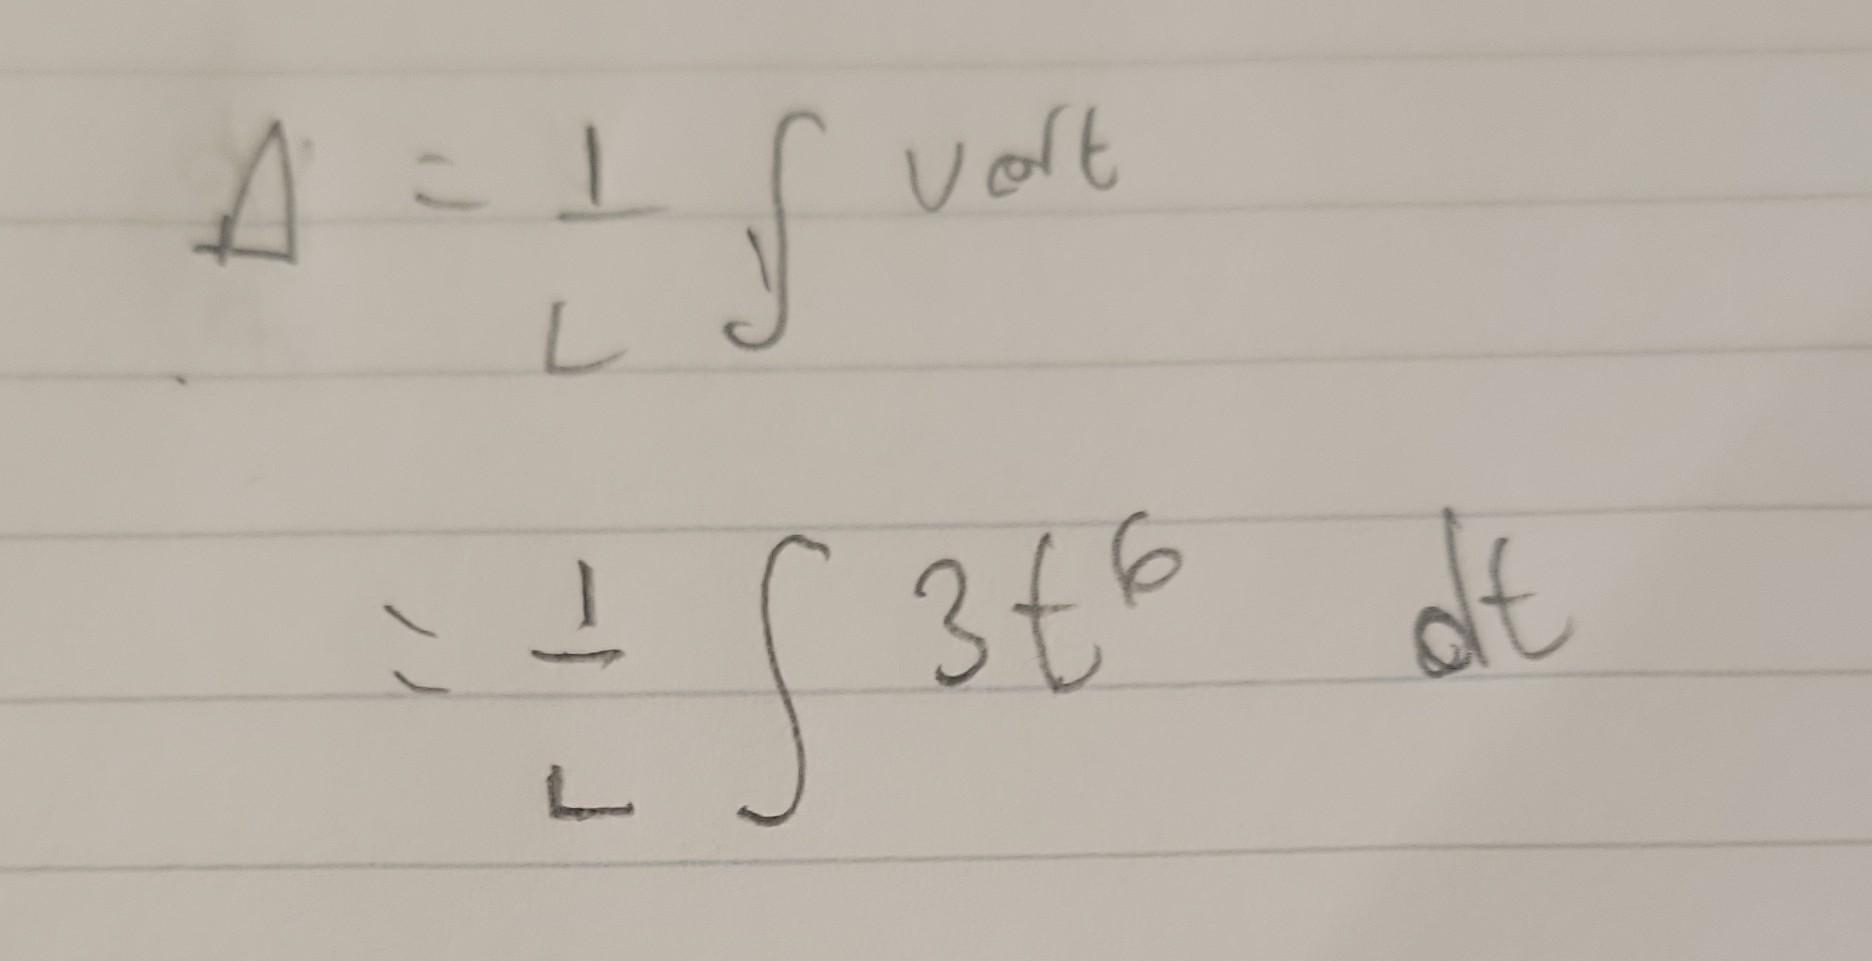 Δ = 1/L ∫ v dt
= 1/L ∫ 3t⁶ dt